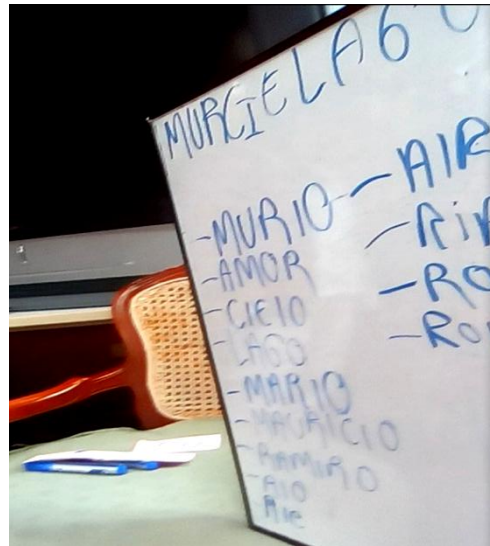 MURCIELAGO
-MURIO
-AMOR
-CIELO
-LAGO
-MARIO
-MAURICIO
-RAMIRO
-RIO
-AIR
-RO
-RO